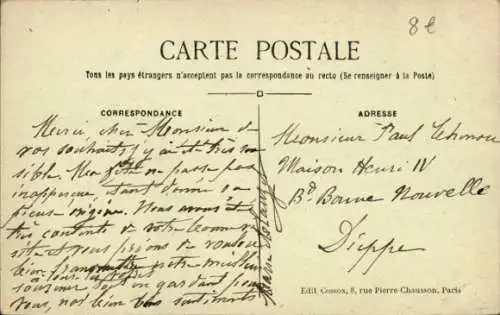 8€
CARTE POSTALE
Tous les pays étrangers n'acceptent pas la correspondance au recto (Se renseigner à la Poste)
CORRESPONDANCE
ADRESSE
Merci, cher Monsieur de
vos souhaits, j'y ai été très sen
sible. Ma fête ne passe pas
inaperçue, étant donné sa
pieuse origine. Nous avons été
très contents de votre bonne
et nous prions de vouloir
bien transmettre notre meilleur
souvenir tout en gardant pour
vous, nos bien bons sentiments
Monsieur Paul
Maison Henri IV
Bd. Bonne Nouvelle
Dieppe
Edit Cosson, 8, rue Pierre-Chausson, Paris